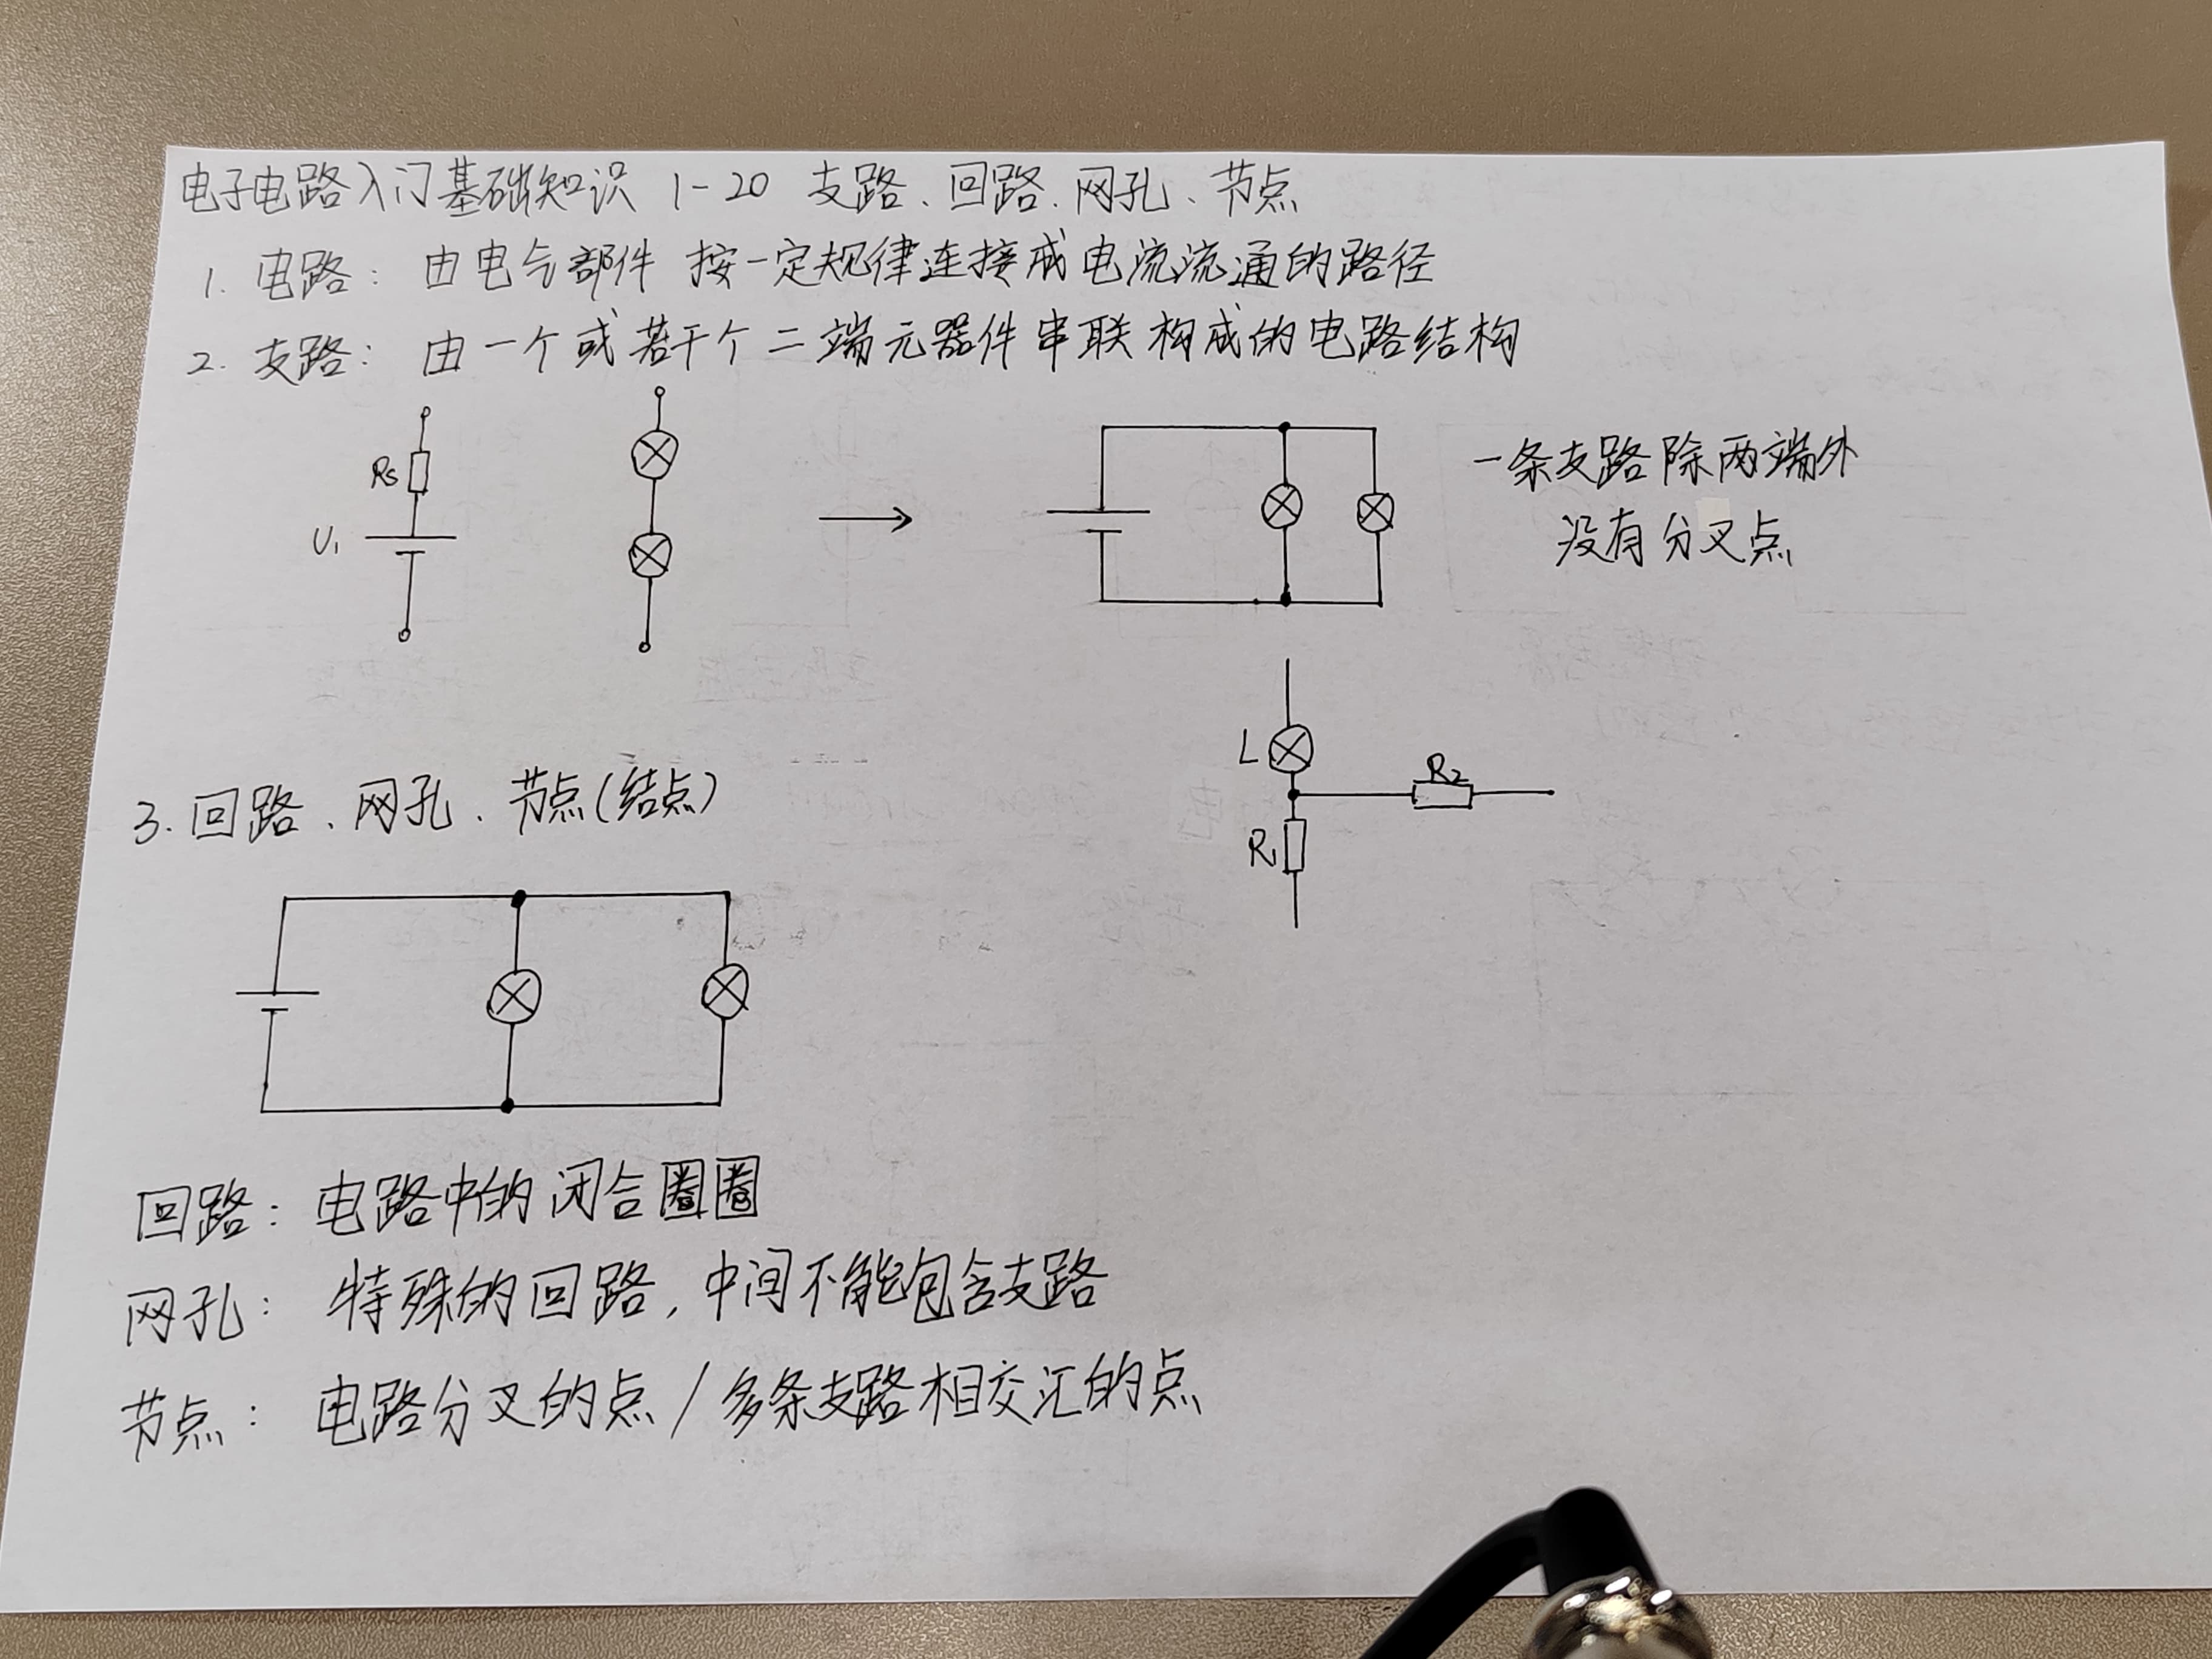 电子电路入门基础知识 1-20 支路、回路、网孔、节点
1. 电路：由电气部件 按一定规律连接成电流流通的路径
2. 支路：由一个或若干个二端元器件串联构成的电路结构
Rs
U₁
一条支路除两端外
没有分叉点
L
R₂
R₁
3. 回路、网孔、节点(结点)
回路：电路中的闭合圈圈
网孔：特殊的回路，中间不能包含支路
节点：电路分叉的点/多条支路相交汇的点